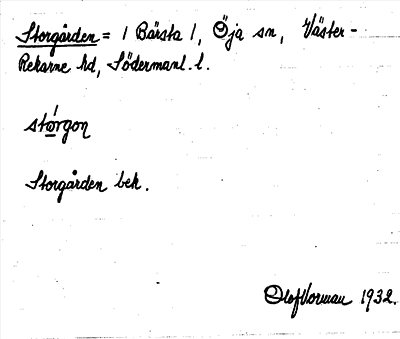 Storgården = / Bärsta /, Öja sn, Väster-
Rekarne hd, Södermanl. l.
stórgon
Storgården bek.
Olof Norman 1932.